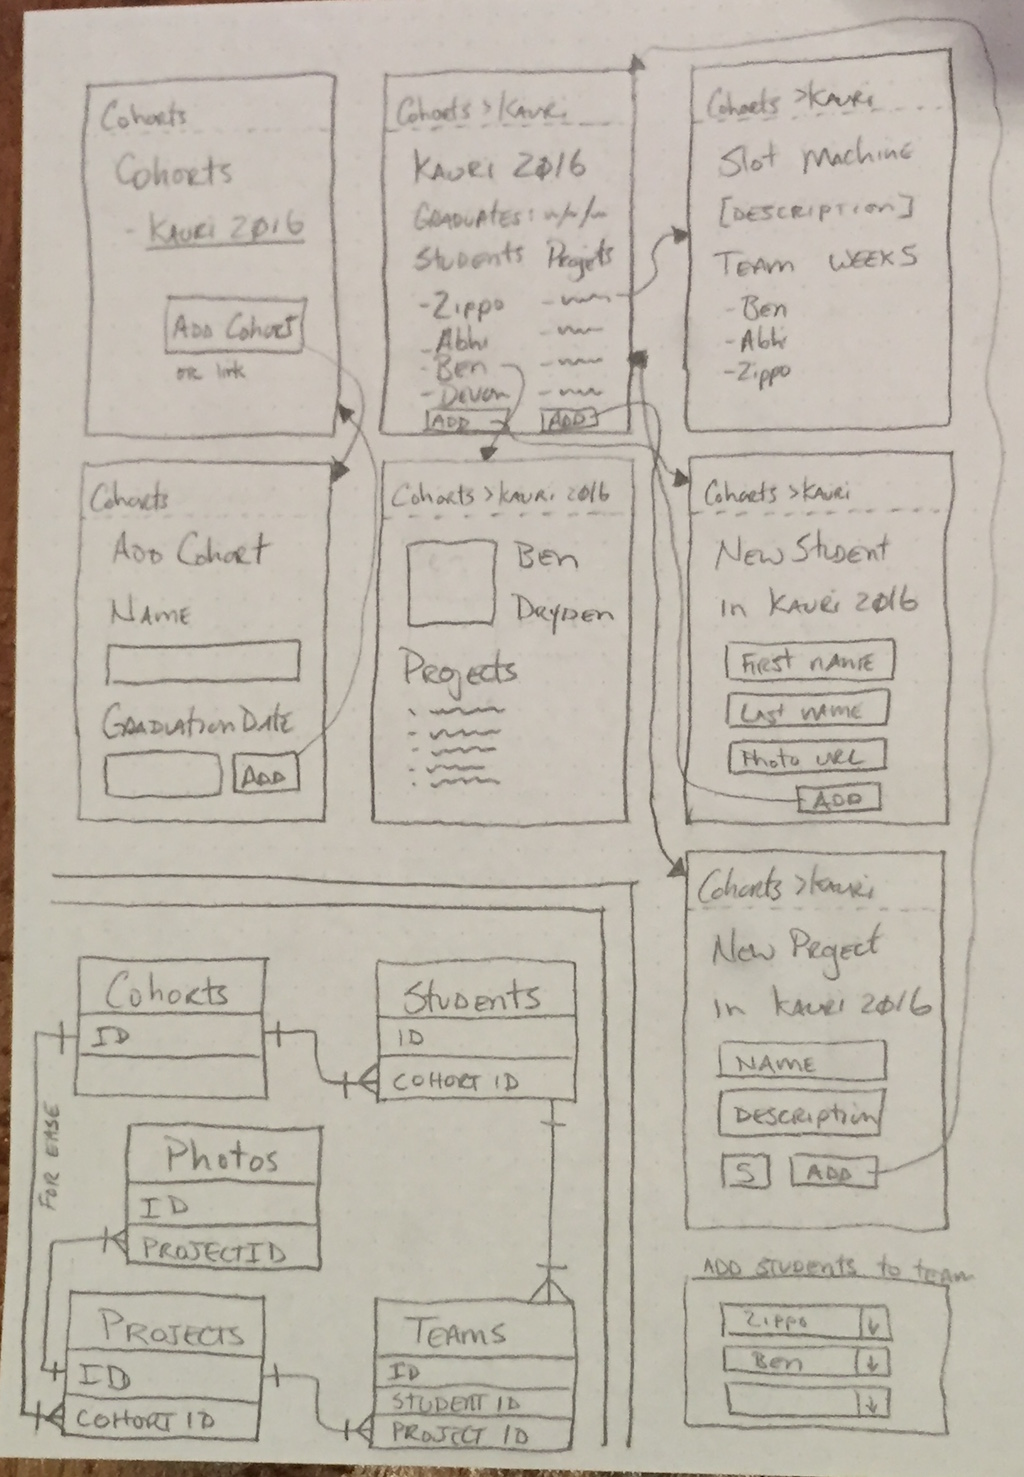 Cohorts
Cohorts
- KAURI 2016
ADD Cohort
OR link
Cohorts >KAURI
KAURI 2016
GRADUATES:
STUDENTS Projets
-Zippo
-Abhi
-Ben
-Devon
ADD ADD
Cohorts >KAURI
Slot MACHINE
[DESCRIPTION]
TEAM WEEK 5
-Ben
-Abhi
-Zippo
Cohorts
ADD Cohort
NAME
GRADUATION DATE
ADD
Cohorts >KAURI 2016
BEN
DRYDEN
Projects
Cohorts >KAURI
NEW STUDENT
IN KAURI 2016
FIRST NAME
LAST NAME
Photo URL
ADD
Cohorts >KAURI
NEW Project
IN KAURI 2016
NAME
DESCRIPTION
5 ADD
ADD STUDENTS to TEAM
Zippo
Ben
Cohorts
ID
STUDENTS
ID
COHORT ID
FOR EASE
Photos
ID
PROJECT ID
PROJECTS
ID
COHORT ID
TEAMS
ID
STUDENT ID
PROJECT ID